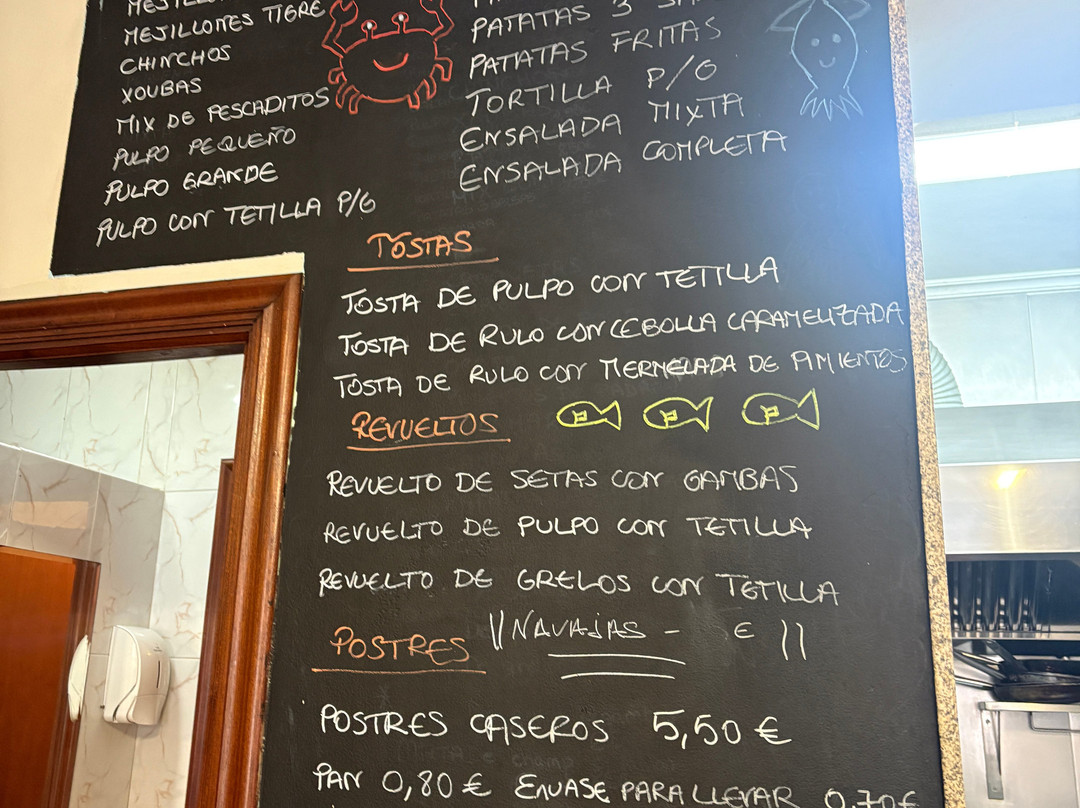 MEJILLONES TIGRE
CHINCHOS
XOUBAS
MIX DE PESCADITOS
PULPO PEQUEÑO
PULPO GRANDE
PULPO CON TETILLA P/G
PATATAS 3
PATATAS FRITAS
TORTILLA P/G
ENSALADA MIXTA
ENSALADA COMPLETA
TOSTAS
TOSTA DE PULPO CON TETILLA
TOSTA DE RULO CON CEBOLLA CARAMELIZADA
TOSTA DE RULO CON MERMELADA DE PIMIENTOS
REVUELTOS
REVUELTO DE SETAS CON GAMBAS
REVUELTO DE PULPO CON TETILLA
REVUELTO DE GRELOS CON TETILLA
POSTRES
||NAVAJAS - € ||
POSTRES CASEROS 5,50 €
PAN 0,80 € ENVASE PARA LLEVAR 0,70 €